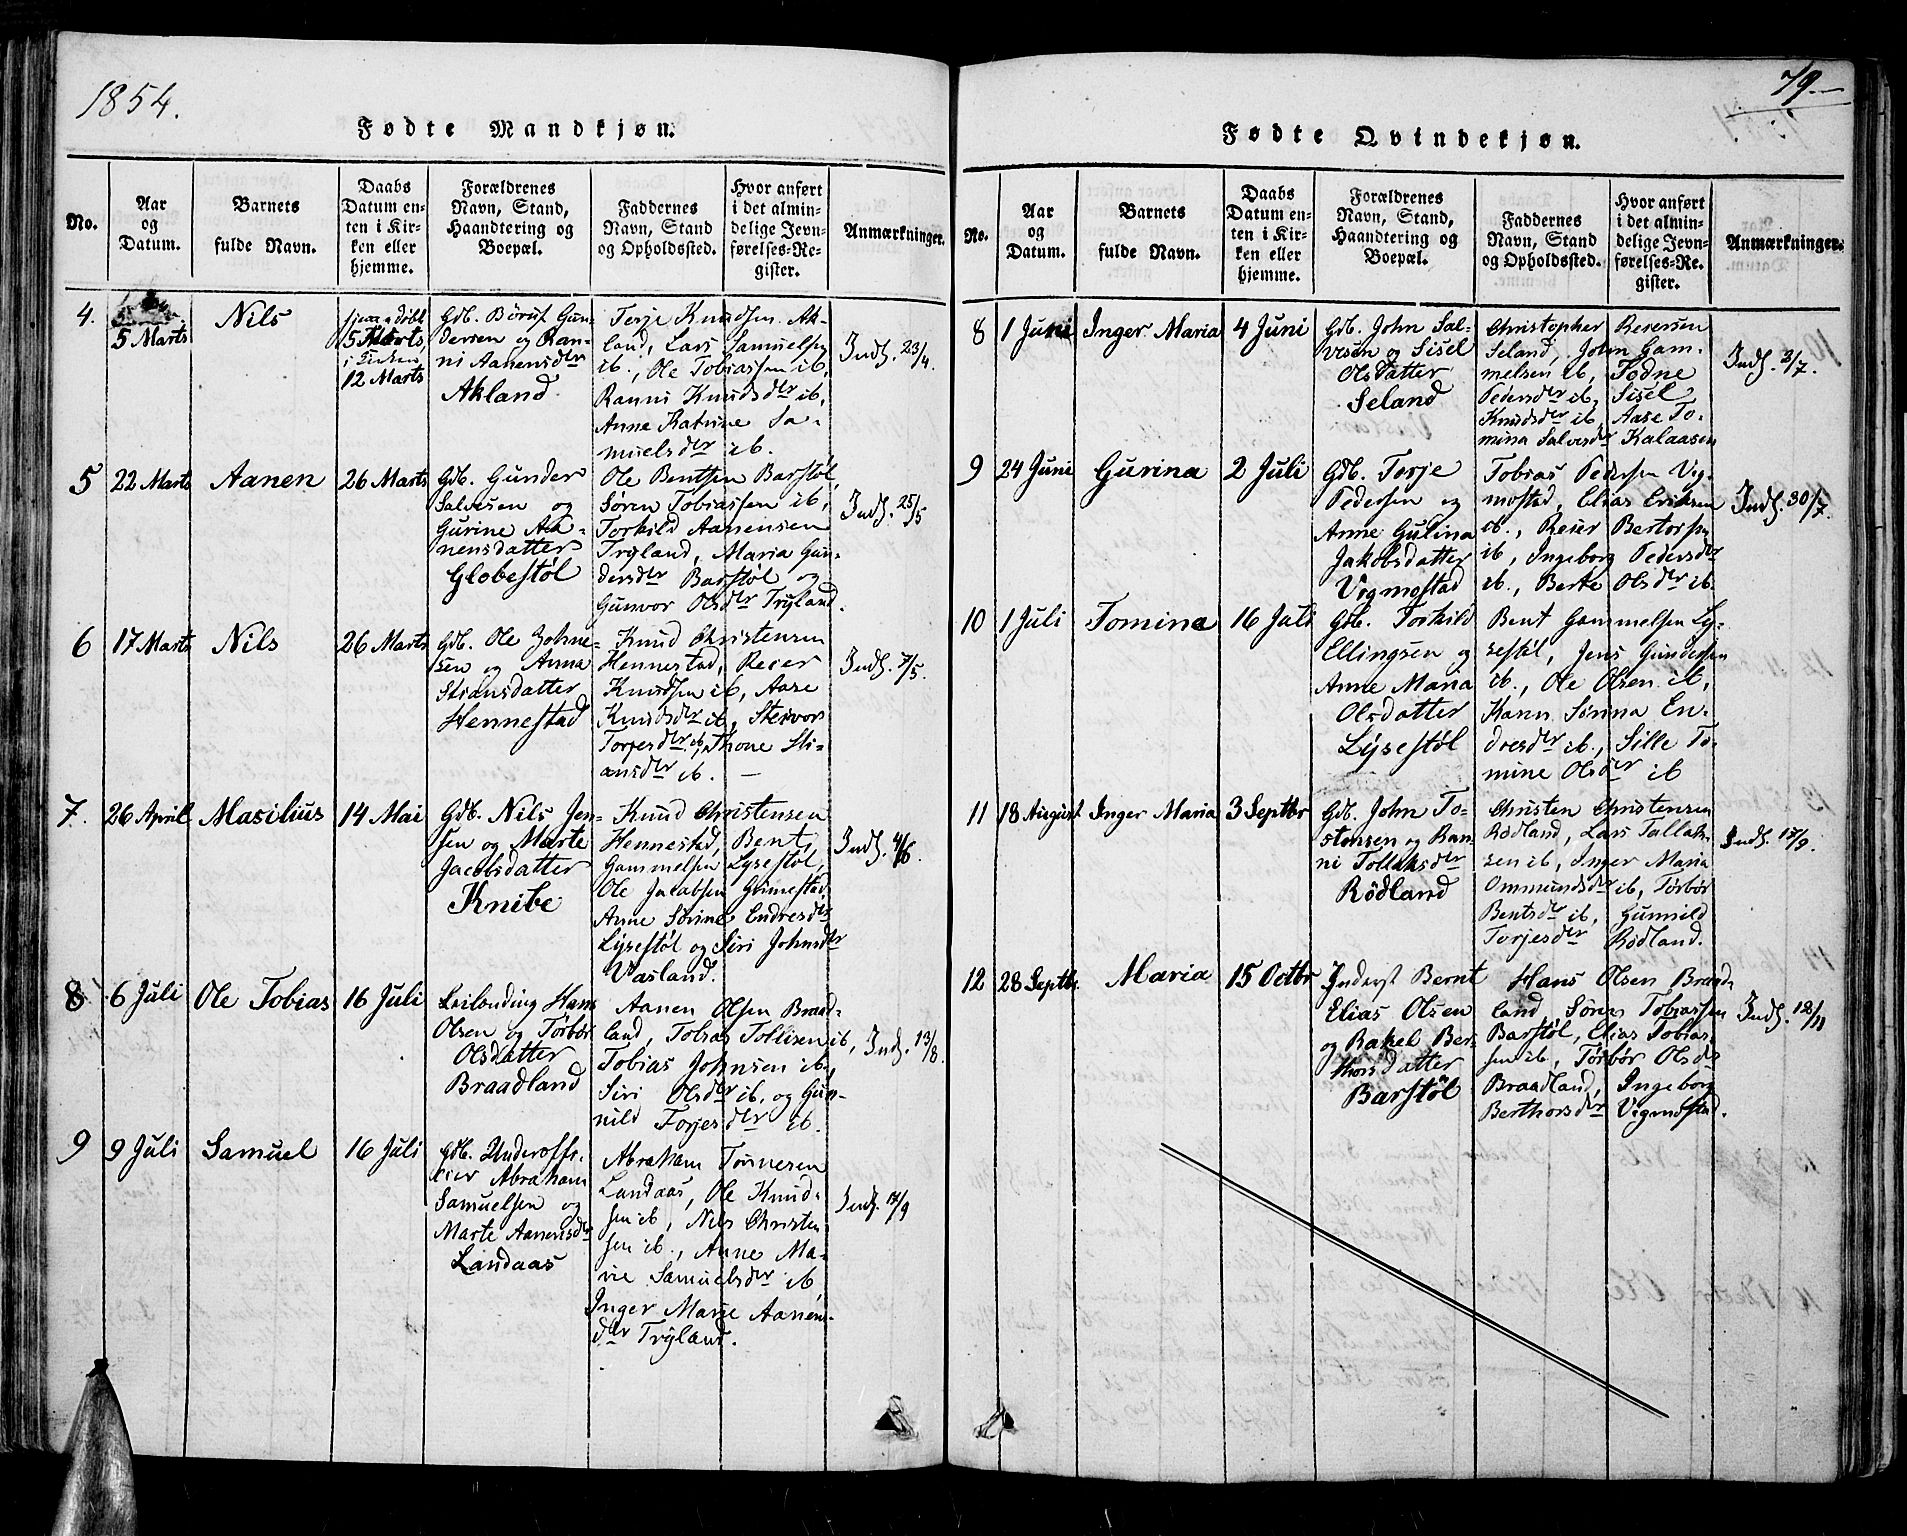 1854.
Fødte Mandkjøn.
No.
Aar
og
Datum.
Barnets
fulde Navn.
Daabs
Datum en-
ten i Kir-
ken eller
hjemme.
Forældrenes
Navn, Stand,
Haandtering og
Boepæl.
Faddernes
Navn, Stand
og Opholdssted.
Hvor anført
i det almin-
delige Jevn-
førelses-Re-
gister.
Anmærkninger.
4.
5 Marts
Nils
5 Marts
12 Marts
Gdb. Børuf Gun-
dersen og Ran-
ni Aanensdr
Akland
Terje Knudsen Ak-
land, Lars Samuelsen
ib., Ole Tobiassen ib,
Ranni Knudsdr ib,
Anne Katrine Sa-
muelsdr ib.
Indf. 23/4.
5
22 Marts
Aanen
26 Marts
Gdb. Gunder
Salvesen og
Gurine Aa-
nensdatter
Globestøl
Ole Bentsen Barstøl,
Søren Tobiassen ib,
Torkild Aanensen
Tryland, Maria Gun-
dersdr Barstøl og
Gunvor Olsdr Tryland.
Indf. 25/5
6
17 Marts
Nils
26 Marts
Gdb. Ole Johne-
sen og Anna
Stiansdatter
Hennestad
Knud Christensen
Hennestad, Reier
Knudsen ib, Aase
Knudsdr ib, Steinvor
Torjesdr ib, Thone Sti-
ansdr ib. —
Indf. 7/5.
7.
26 April
Masilius
14 Mai
Gdb. Nils Jen-
sen og Marte
Jacobsdatter
Knibe
Knud Christensen
Hennestad, Bent
Gammelsen Lysestøl,
Ole Jacobsen Grimestad
Anne Sørine Endresdr
Lysestøl og Siri Johnsdr
Vasland.
Indf. 4/6.
8
6 Juli
Ole Tobias
16 Juli
Leilænding Hans
Olsen og Tørbør
Olsdatter
Braadland
Aanen Olsen Braad-
land, Tobias Tollisen ib,
Tobias Johnsen ib.,
Siri Olsdr ib. og Gun-
nild Torjesdr ib.
Indf. 13/8.
9
9 Juli
Samuel
16 Juli
Gdb. Underoffi-
cier Abraham
Samuelsen og
Marte Aanensdr
Landaas
Abraham Tønnesen
Landaas, Ole Knud-
sen ib, Nils Christen
sen ib., Anne Ma-
rie Samuelsdr ib
Inger Marie Aanens-
dr Tryland.
Indf. 17/9
79.—
Fødte Qvindekjøn.
No.
Aar
og
Datum.
Barnets
fulde Navn.
Daabs
Datum en-
ten i Kir-
ken eller
hjemme.
Forældrenes
Navn, Stand,
Haandtering og
Boepæl.
Faddernes
Navn, Stand
og Opholdssted.
Hvor anført
i det almin-
delige Jevn-
førelses-Re-
gister.
Anmærkninger.
8
1 Juni
Inger Maria
4 Juni
Gdb. John Sal-
vesen og Sisel
Olsdatter
Seland
Christopher Reiersen
Seland, John Gam-
melsen ib, Todne
Pedersdr ib, Sisel
Knudsdr ib, Aase To-
mina Salvesdr Kalaasen
Indf. 3/7.
9
24 Juni
Gurina
2 Juli
Gdb. Torje
Pedersen og
Anne Gulina
Jakobsdatter
Vigmostad
Tobias Pedersen Vig-
mostad, Elias Eriksen
ib., Reier Bertorsen
ib, Ingeborg Pedersdr
ib., Berte Olsdr ib.
Indf. 30/7.
10
1 Juli
Tomine
16 Juli
Gdb. Torkild
Ellingsen og
Anne Maria
Olsdatter
Lysestøl
Bent Gammelsen Ly-
sestøl, Jens Gundersen
ib., Ole Olsen ib,
Karen Sørina En-
dresdr ib., Sille To-
mine Olsdr ib
11
18 August
Inger Maria
3 Septbr
Gdb. John To-
stensen og Ran-
ni Tollaksdr
Rödland
Christen Christensen
Rödland, Lars Tallak-
sen ib, Inger Maria
Ommundsdr ib, Tørbør
Bentsdr ib, Gunnild
Torjesdr Rödland.
Indf. 17/9.
12
28 Septbr.
Maria
15 Octbr
Inderst Bernt
Elias Olsen
og Rakel Ber-
thorsdatter
Barstøl
Hans Olsen Braad-
land, Søren Tobiassen
Barstøl, Elias Tobias-
sen ib, Tørbør Olsdr
Braadland, Ingeborg
Berthorsdr Vigmostad.
Indf. 12/11